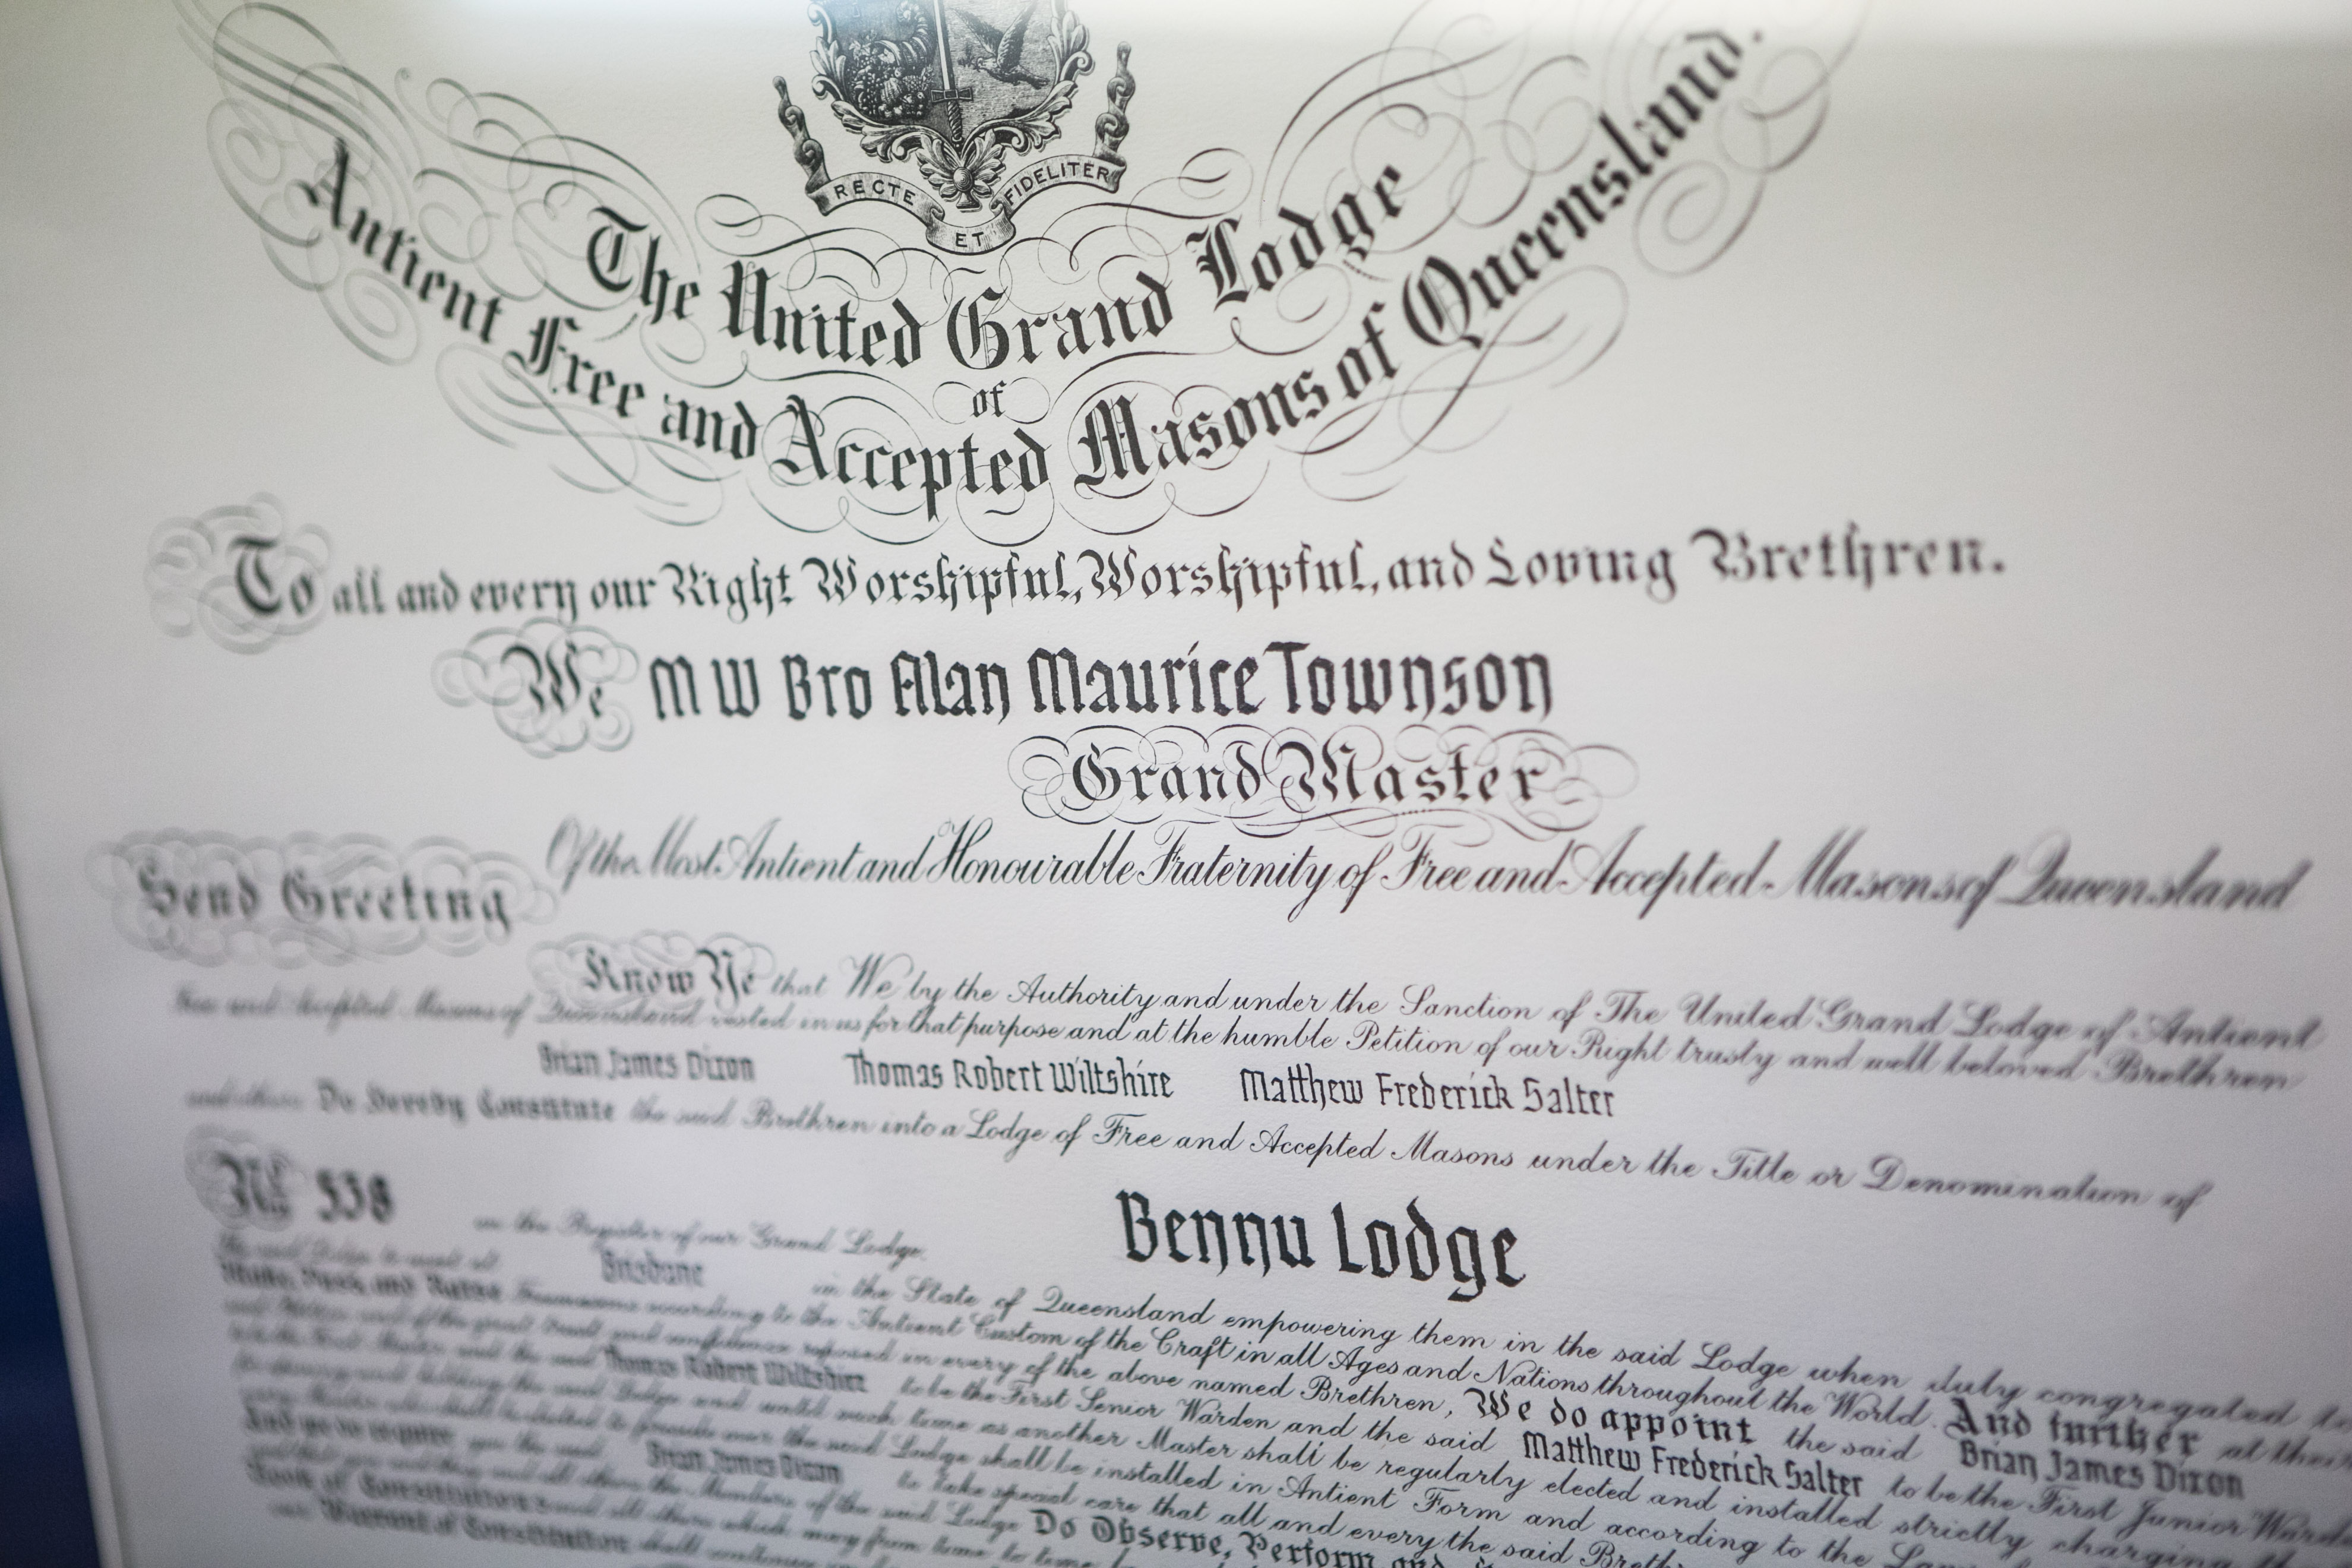 RECTE ET FIDELITER
The United Grand Lodge
of
Antient Free and Accepted Masons of Queensland.
To all and every our Right Worshipful, Worshipful, and Loving Brethren.
We M W Bro Alan Maurice Townson
Grand Master
Of the Most Antient and Honourable Fraternity of Free and Accepted Masons of Queensland
Send Greeting
Know Ye that We by the Authority and under the Sanction of The United Grand Lodge of Antient
Free and Accepted Masons of Queensland vested in us for that purpose and at the humble Petition of our Right trusty and well beloved Brethren
Brian James Dixon Thomas Robert Wiltshire Matthew Frederick Salter
and others Do hereby Constitute the said Brethren into a Lodge of Free and Accepted Masons under the Title or Denomination of
Bennu Lodge
No 538 on the Register of our Grand Lodge,
the said Lodge to meet at Brisbane in the State of Queensland empowering them in the said Lodge when duly congregated to
Make, Pass, and Raise Freemasons according to the Antient Custom of the Craft in all Ages and Nations throughout the World. And further at their
and confidence reposed in every of the above named Brethren, We do appoint the said Brian James Dixon
to be the First Master and the said Thomas Robert Wiltshire to be the First Senior Warden and the said Matthew Frederick Salter to be the First Junior Warden
for opening and holding the said Lodge and until such time as another Master shall be regularly elected and installed strictly
the said Lodge shall be installed in Antient Form and according to the
And we do require you the said Brian James Dixon to take special care that all and every the said
the Members of the said Lodge Do Observe, Perform and
Book of Constitutions and all others which may from time to time
our Warrant of Constitution shall